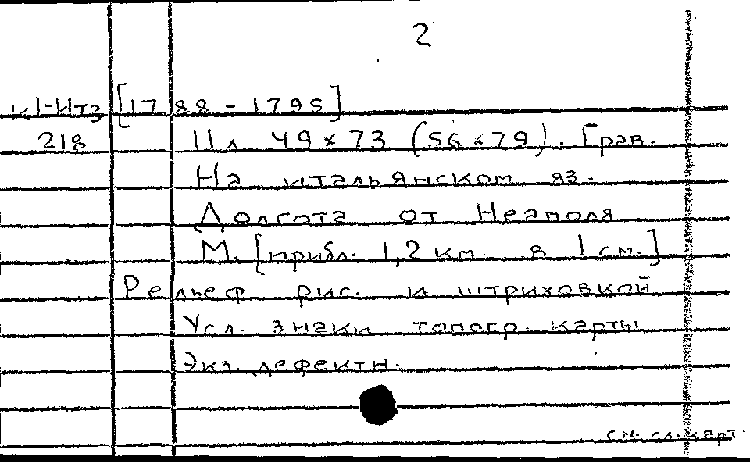 2
К1-Ит3 [1788 - 1795]
218 11 л 49 x 73 (56 x 79). Грав.
На итальянском яз.
Долгота от Неаполя
М. [прибл. 1,2 км в 1 см.]
Рельеф рис. и штриховкой
Усл. знаки топогр. карты
Экз. дефектн.
см. сл. карт.